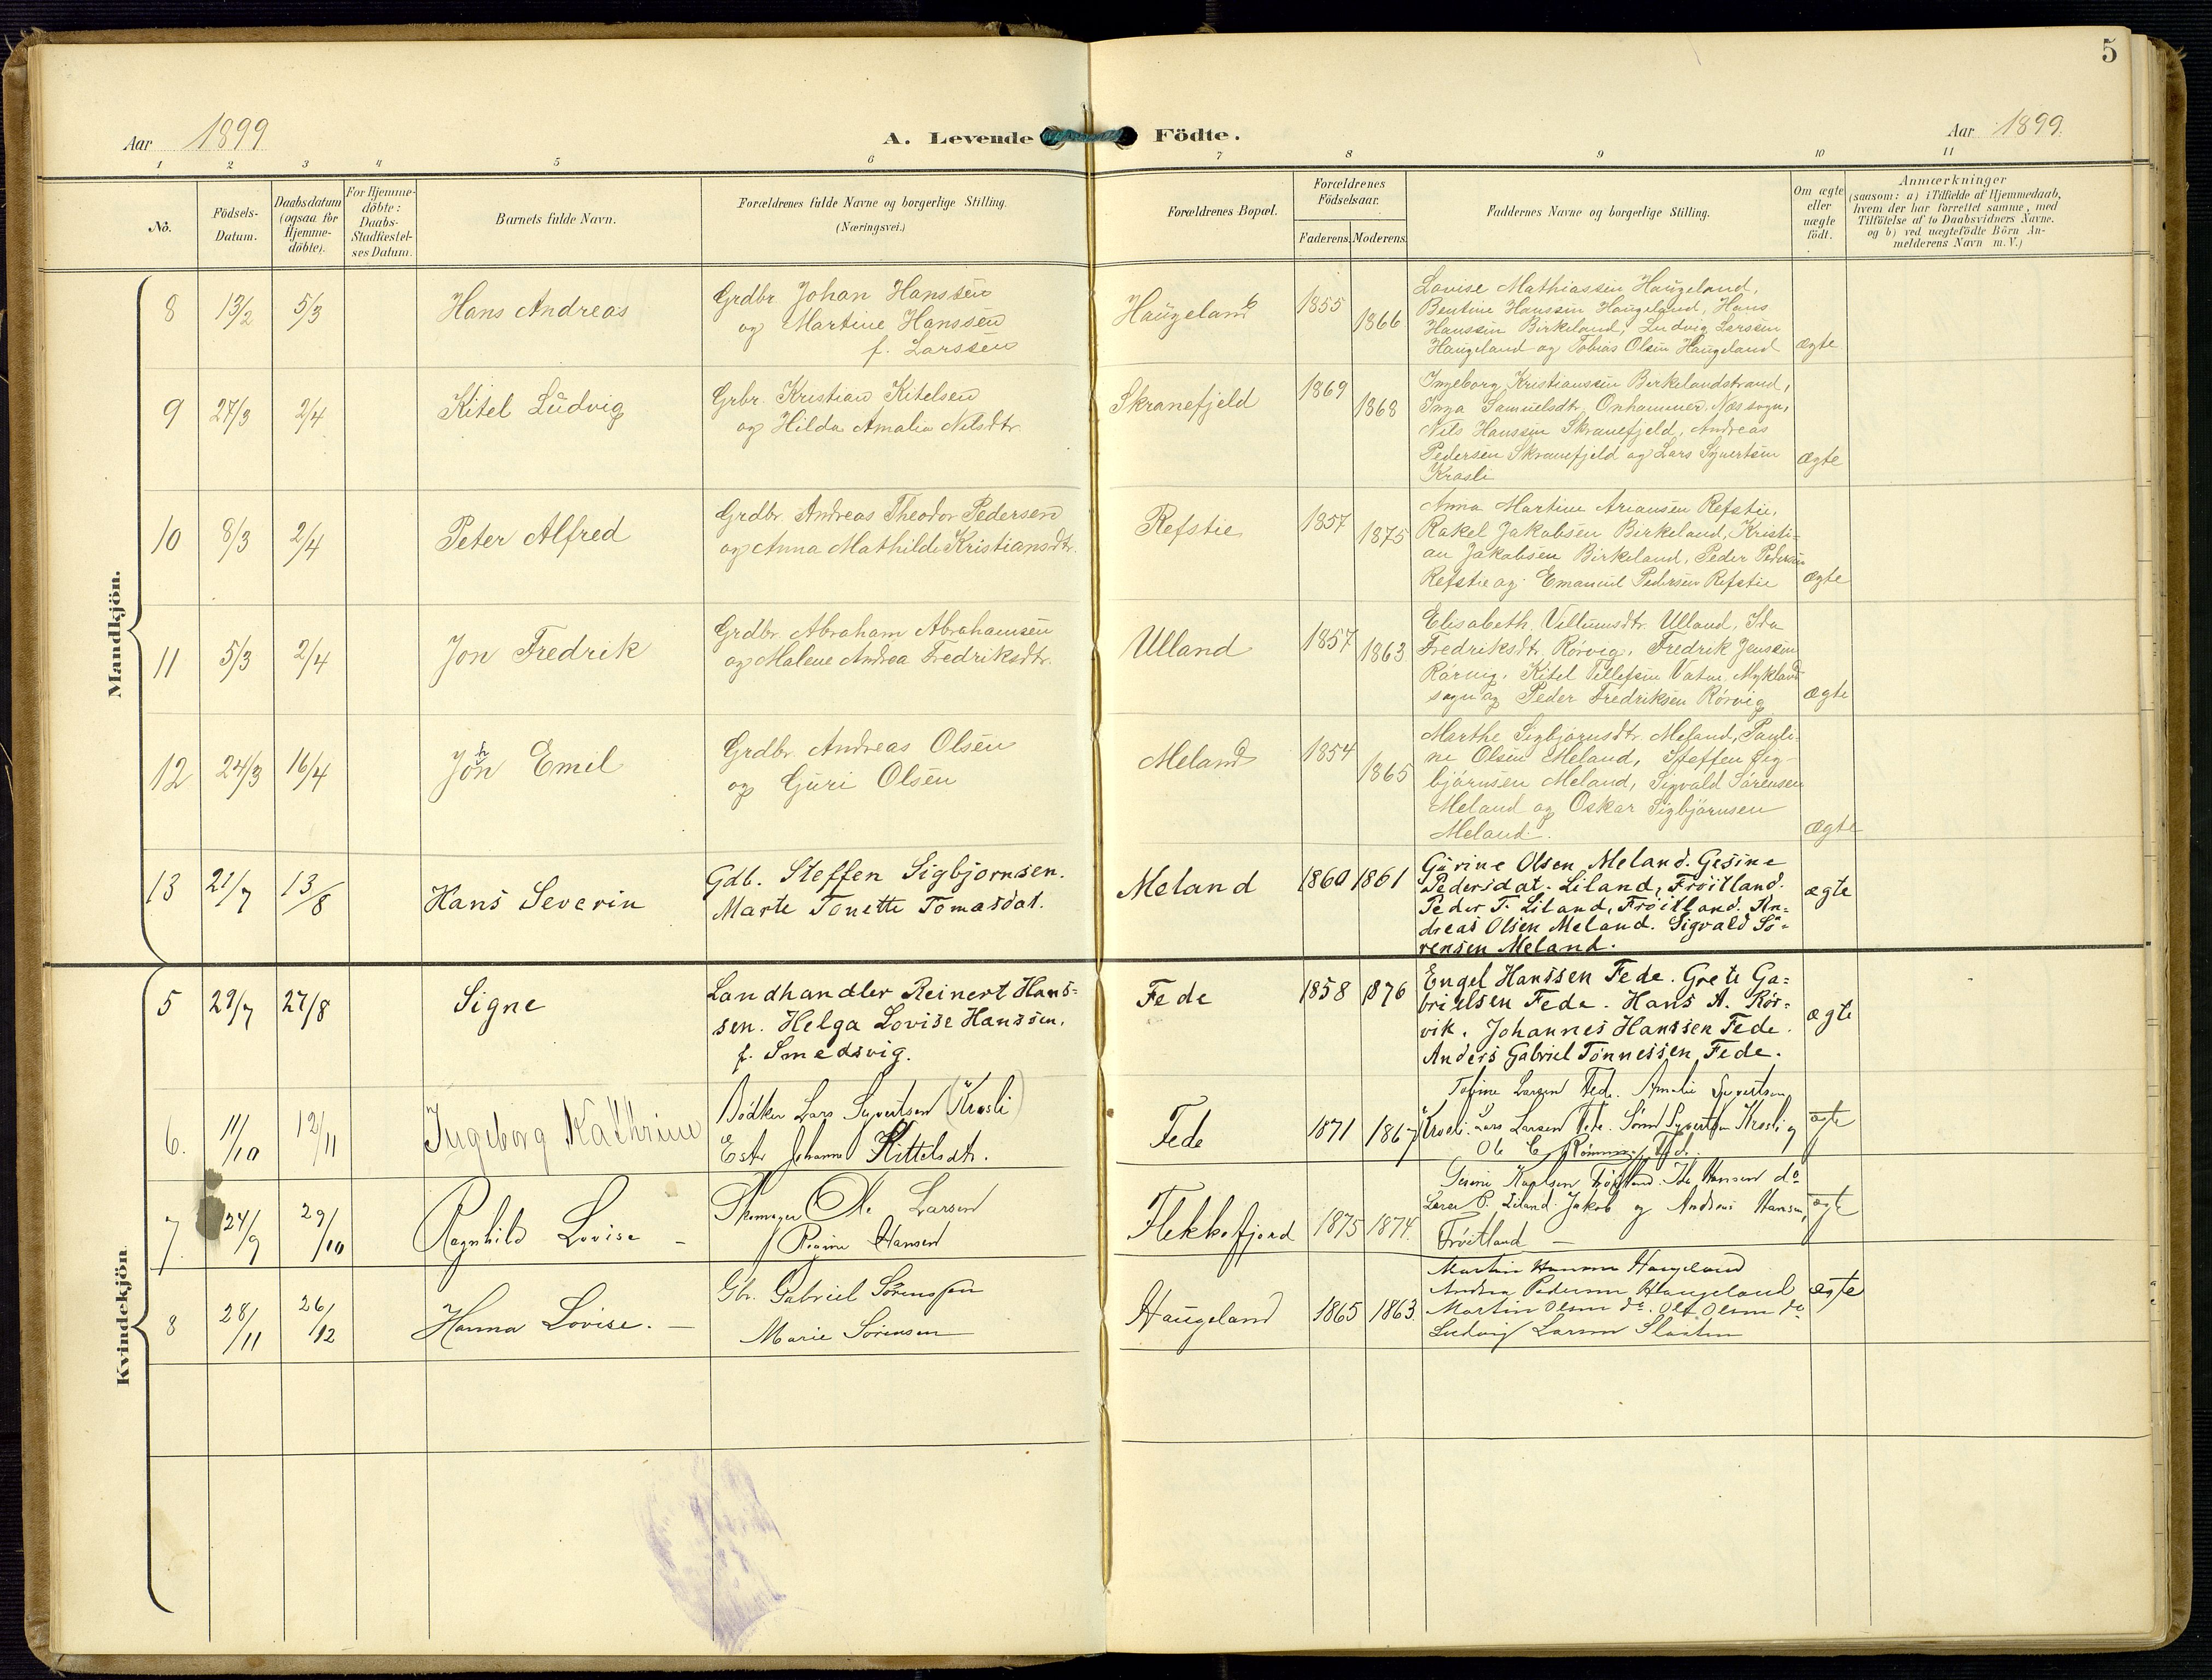 5
Aar 1899
A. Levende Födte.
Aar 1899.
1 2 3 4 5 6 7 8 9 10 11
No.
Födsels-
Datum.
Daabsdatum
(ogsaa for
Hjemme-
döbte).
For Hjemme-
döbte:
Daabs-
Stadfæstel-
ses Datum.
Barnets fulde Navn.
Forældrenes fulde Navne og borgerlige Stilling.
(Næringsvei.)
Forældrenes Bopæl.
Forældrenes
Födselsaar.
Faderens. Moderens.
Faddernes Navne og borgerlige Stilling.
Om ægte
eller
uægte
födt.
Anmærkninger
(saasom: a) i Tilfælde af Hjemmedaab,
hvem der har forrettet samme, med
Tilföielse af to Daabsvidners Navne.
og b) ved uægtefödte Börn An-
melderens Navn m. V.)
Mandkjön.
8 13/2 5/3
Hans Andreas
Grdbr. Johan Hanssen
og Martine Hanssen
f. Larssen
Haugeland
1855 1866
Lovise Mathiassen Haugeland,
Bentine Hanssen Haugeland, Hans
Hanssen Birkeland, Ludvig Larssen
Haugeland og Tobias Olsen Haugeland
ægte
9 27/3 2/4
Kitel Ludvig
Grbr. Kristian Kitelsen
og Hilda Amalia Nilsdtr.
Skranefjeld
1869 1868
Ingeborg Kristianssen Birkelandstrand,
Inga Samuelsdtr. Onhammer. Næs sogn,
Nils Hanssen Skranefjeld, Andreas
Pedersen Skranefjeld og Lars Syvertsen
Krosli
Ægte
10 8/3 2/4
Peter Alfred
Grdbr. Andreas Theodor Pedersen
og Anna Mathilde Kristiansdtr.
Refstie
1857 1875
Anna Martine Ariansen Refstie,
Rakel Jakobsen Birkeland, Kristi-
an Jakobsen Birkeland, Peder Pedersen
Refstie og Emanuel Pedersen Refstie
ægte
11 5/3 2/4
Jon Fredrik
Grdbr. Abraham Abrahamsen
og Malene Andrea Fredriksdtr.
Ulland
1857 1863
Elisabeth Villumsdtr. Ulland, Ida
Fredriksdtr. Rörvig, Fredrik Jenssen
Rörvig, Kitel Tellefsen Vatne, Mykland
sogn og Peder Fredriksen Rörvig
ægte
12 24/3 16/4
John Emil
Grdbr. Andreas Olsen
og Guri Olsen
Meland
1854 1865
Marthe Sigbjörnsdtr. Meland, Pauli-
ne Olsen Meland, Steffen Sig-
björnsen Meland, Sigvald Sørensen
Meland og Oskar Sigbjörnsen
Meland.
ægte
13 21/7 13/8
Hans Severin
Gdb. Steffen Sigbjornsen.
Marte Tonette Tomasdat.
Meland
1860 1861
Gurine Olsen Meland. Gesine
Pedersdat. Liland, Fröitland.
Peder T. Liland, Fröitland. An-
dreas Olsen Meland. Sigvald Sö-
rensen Meland.
ægte
Kvindekjön.
5 29/7 27/8
Signe
Landhandler Reinert Hans-
sen. Helga Lovise Hanssen,
f. Smedsvig.
Fede
1858 1876
Engel Hanssen Fede. Grete Ga-
brielsen Fede. Hans A. Rör-
vik. Johannes Hanssen Fede.
Anders Gabriel Tönnessen, Fede.
ægte
6. 11/10 12/11
Ingeborg Kathrine
Bødker Lars Syvertsen (Krosli)
Ester Johanne Kittelsdtr.
Fede
1871 1867
Tobine Larsen Fede. Amalie Syvertsen
Krosli. Lars Larsen Fede. Sören Syvertsen Krosli og
Ole C. Fede.
ægte
7. 24/9 29/10
Ragnhild Lovise
Skomager Ole Larsen
Regine Hansen
Flekkefjord
1875 1874.
Gesine Fröitland. Ida Hansen do
P. Liland. Jakob og Andreas Hansen,
Fröitland
ægte
8 28/11 26/12
Hanna Lovise.
Gbr. Gabriel Sørenssen
Marie Sørensen
Haugeland
1865 1863.
Martin Hansen Haugeland
Andrea Pedersen Haugeland
Martin Olsen do. Olf Olsen do
Ludvig Larsen
ægte